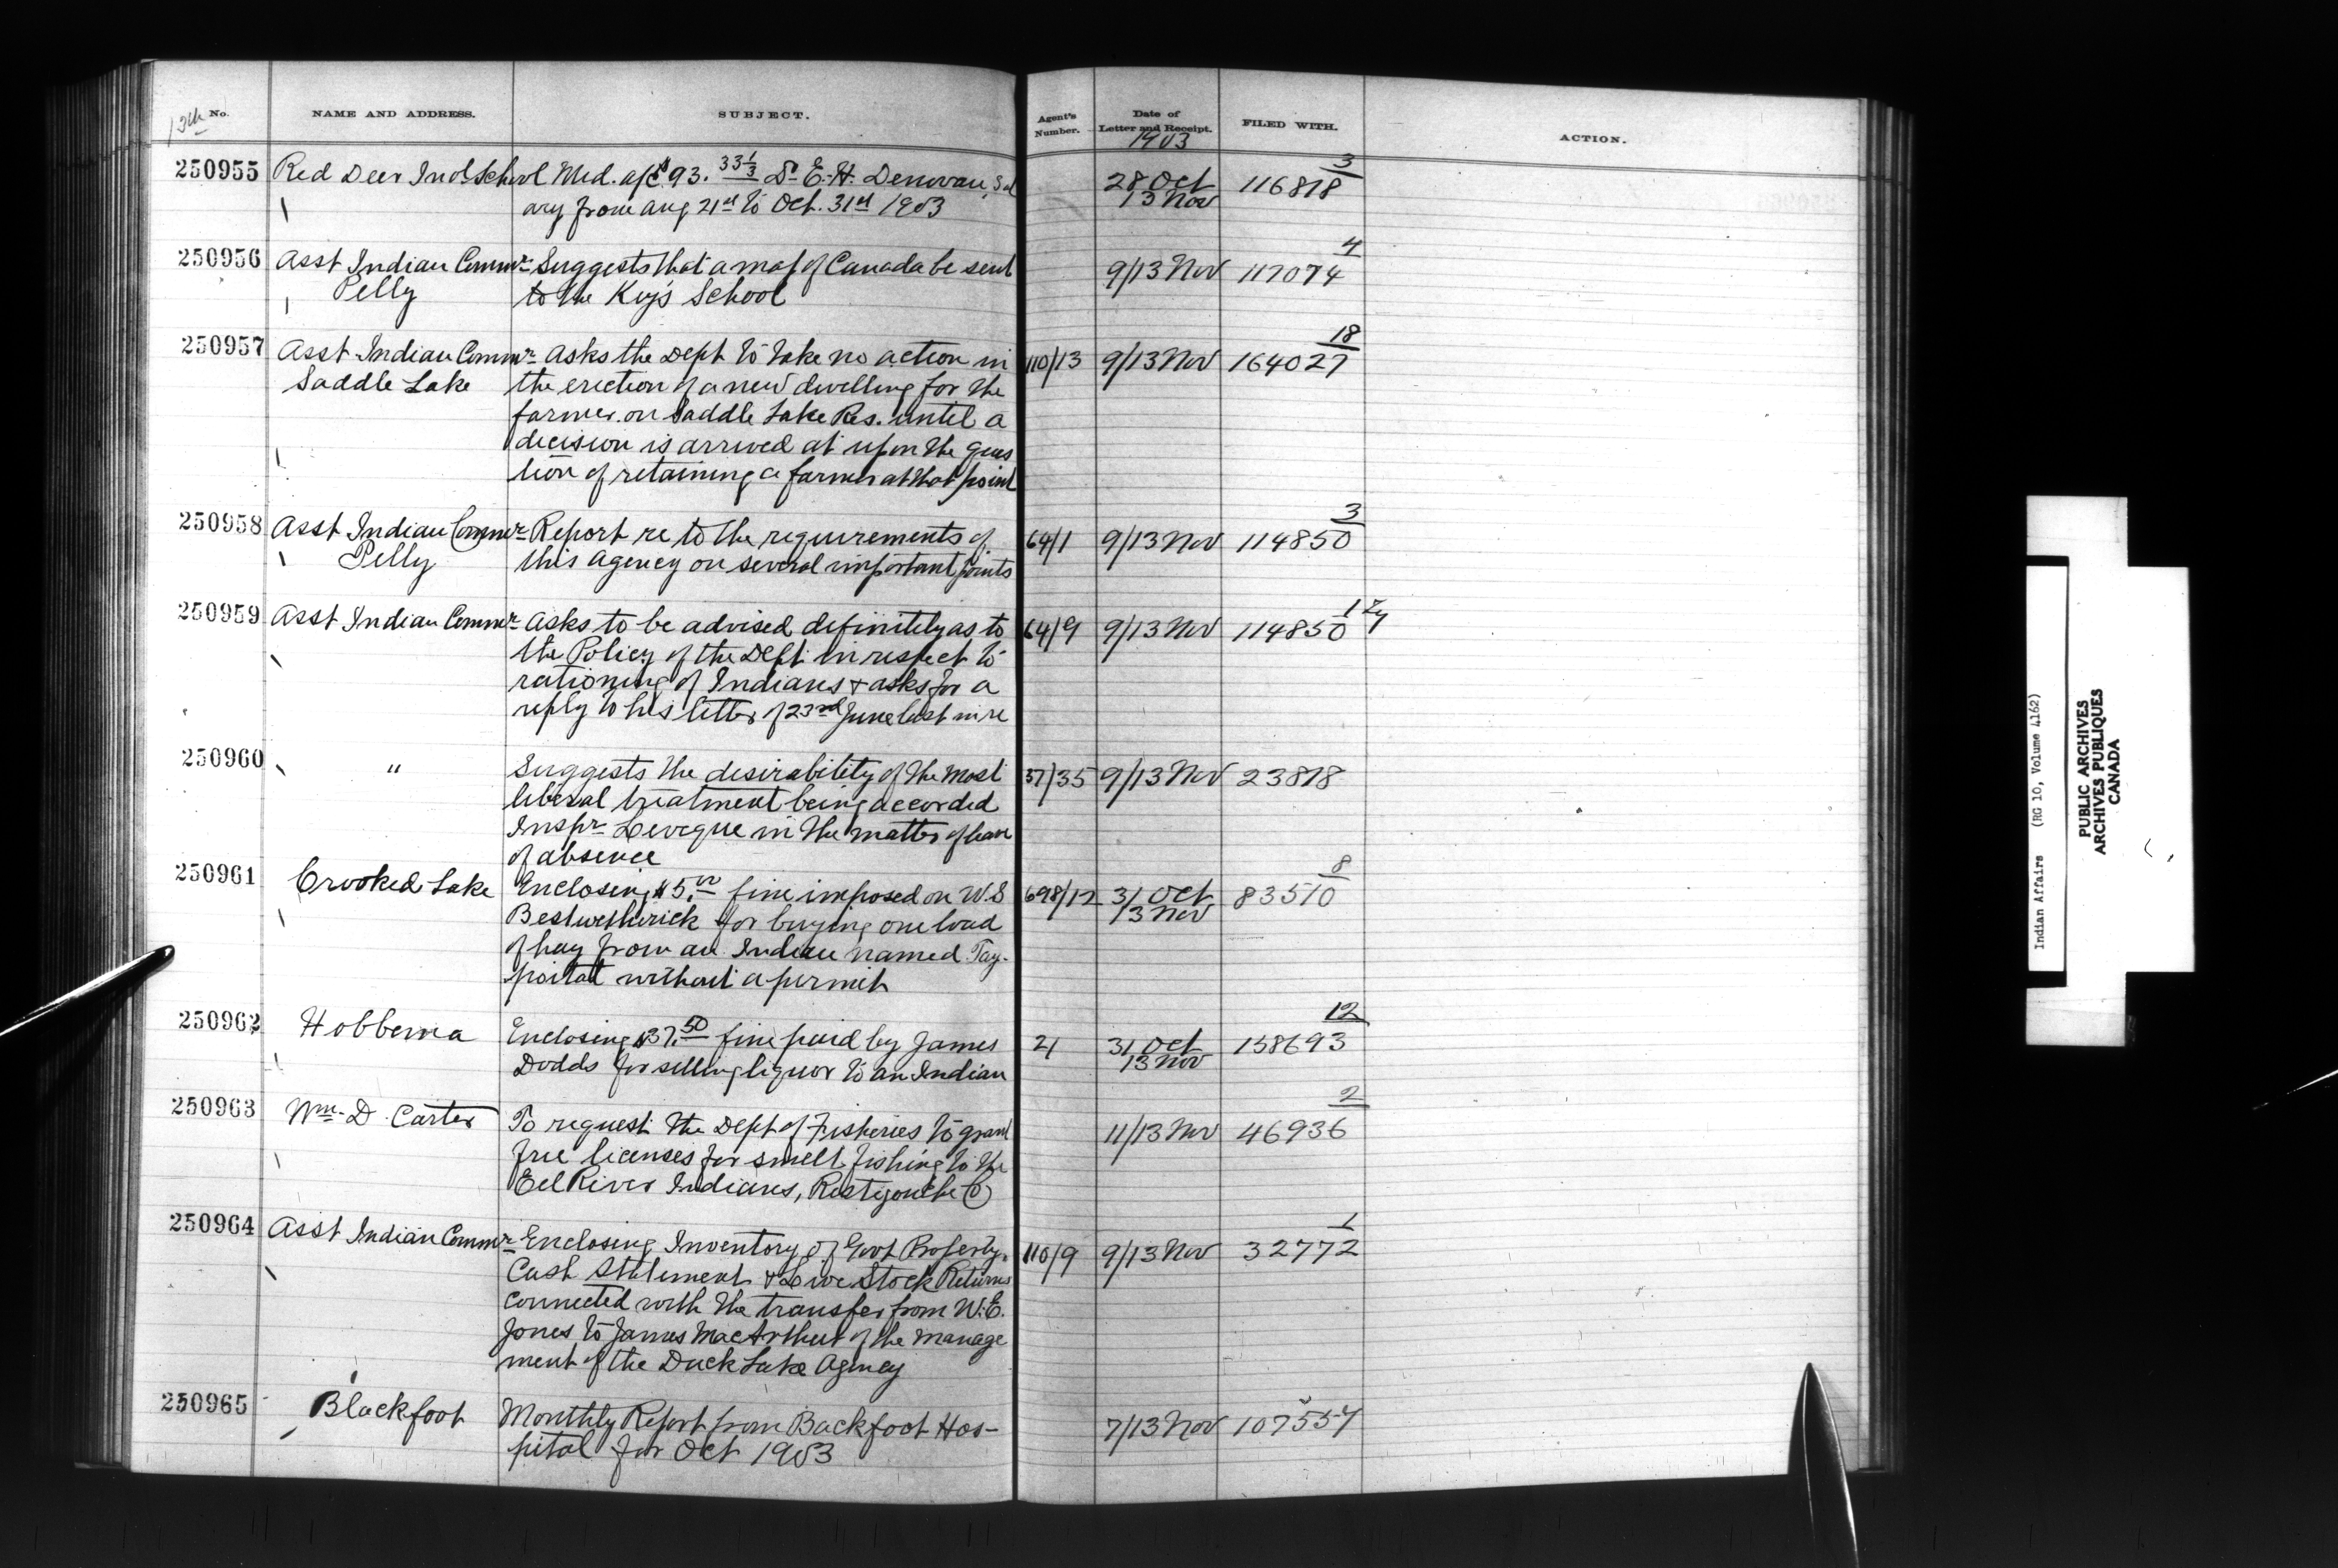 13th No. NAME AND ADDRESS. SUBJECT. Agent's Number. Date of Letter and Receipt. FILED WITH. ACTION.
1903
250955 Red Deer Ind School Med. a/c $93.33 1/3 Dr E. H. Denovan, Sal 28 Oct 3
ary from Aug 21st to Oct. 31st 1903 13 Nov 116818
250956 Asst Indian Commr Suggests that a map of Canada be sent 9/13 Nov 4
Pelly to the Key's School 117074
250957 Asst Indian Commr Asks the Dept to take no action in 110/13 9/13 Nov 18 164027
Saddle Lake the erection of a new dwelling for the
farmer on Saddle Lake Res. until a
decision is arrived at upon the ques
tion of retaining a farmer at that point
250958 Asst Indian Commr Report re to the requirements of 64/1 9/13 Nov 3 114850
Pelly this agency on several important points
250959 Asst Indian Commr Asks to be advised definitely as to 64/9 9/13 Nov 114850
the Policy of the Dept in respect to
rationing of Indians & asks for a
reply to his letter of 23rd June last in re
250960 " Suggests the desirability of the most 37/35 9/13 Nov 23818
liberal treatment being accorded
Inspr Leveque in the matter of leave
of absence
250961 Crooked Lake Enclosing $5.00 fine imposed on W. S 698/12 31 Oct 8 83510
Bestwetherick for buying one load 13 Nov
of hay from an Indian named Tay-
postat without a permit
250962 Hobbema Enclosing $37.50 fine paid by James 21 31 Oct 12 158693
Dodds for selling liquor to an Indian 13 Nov
250963 Wm. D. Carter To request the Dept of Fisheries to grant 11/13 Nov 2 46936
free licenses for smelt fishing to the
Eel River Indians, Restigouche Co
250964 Asst Indian Commr Enclosing Inventory of Govt Property, 110/9 9/13 Nov 1 32772
Cash Statement & Live Stock Returns
connected with the transfer from W. E.
Jones to James MacArthur of the manage
ment of the Duck Lake Agency
250965 Blackfoot Monthly Report from Backfoot Hos- 7/13 Nov 107557
pital for Oct 1903
Indian Affairs (RG 10, Volume 4162)
PUBLIC ARCHIVES
ARCHIVES PUBLIQUES
CANADA